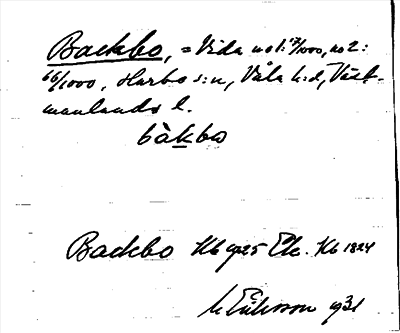 Backbo, = Vida no 1: 7/1000, no 2:
66/1000, Harbo s:n, Våla h:d, Väst-
manlands l.
bàkbo
Backbo Kb 1925 Ek. Kb 1824
Eriksson 1931